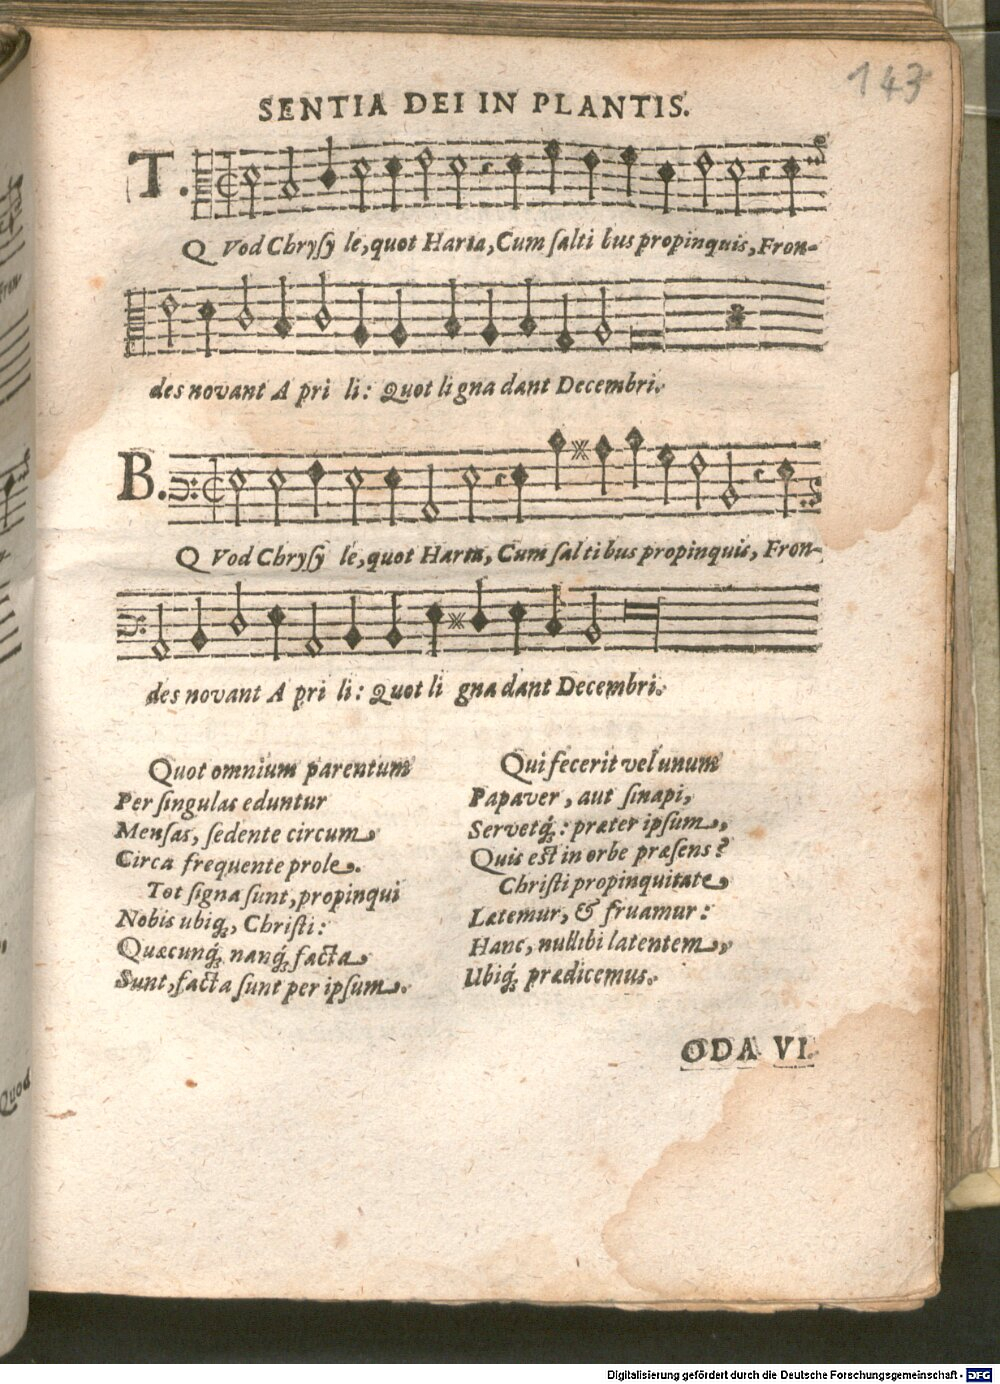 143
SENTIA DEI IN PLANTIS.
T.
Q Vod Chryſy le, quot Harta, Cum ſalti bus propinquis, Fron-
des novant A pri li: Quot li gna dant Decembri.
B.
Q Vod Chryſy le, quot Harta, Cum ſaltibus propinquis, Fron-
des novant A pri li: Quot li gna dant Decembri.
Quot omnium parentum
Per ſingulas eduntur
Menſas, ſedente circum,
Circa frequente prole.
Tot ſigna ſunt, propinqui
Nobis ubiq́;, Chriſti:
Quæcunq́; nanq́; facta,
Sunt, facta ſunt per ipſum.
Qui fecerit vel unum
Papaver, aut ſinapi,
Servetq́;: præter ipſum,
Quis eſt in orbe præſens?
Chriſti propinquitate
Lætemur, & fruamur:
Hanc, nullibi latentem,
Ubiq́; prædicemus.
ODA VI.
Quod
Digitalisierung gefördert durch die Deutsche Forschungsgemeinschaft - DFG